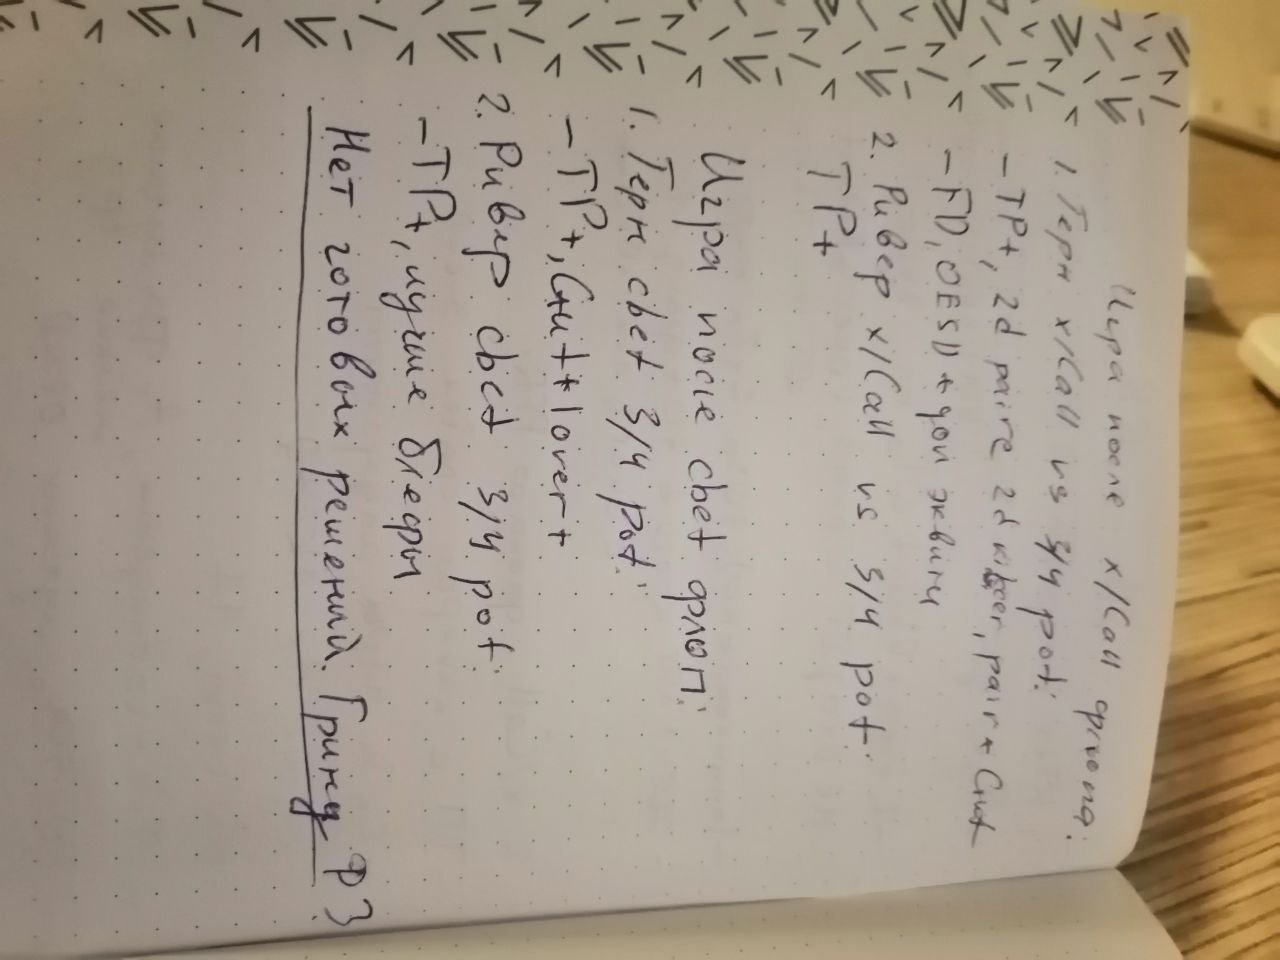 Игра после x/Call флопа:
1. Терн x/Call vs 3/4 pot:
- TP+, 2d paire 2d kicer, pair + Gut
- FD, OESD + доп эквити
2. Ривер x/Call vs 3/4 pot:
TP+
Игра после cbet флоп:
1. Терн cbet 3/4 pot:
- TP+, Gut + 1over +
2. Ривер cbet 3/4 pot:
- TP+, лучшие блефы
Нет готовых решений. Гринд ФЗ